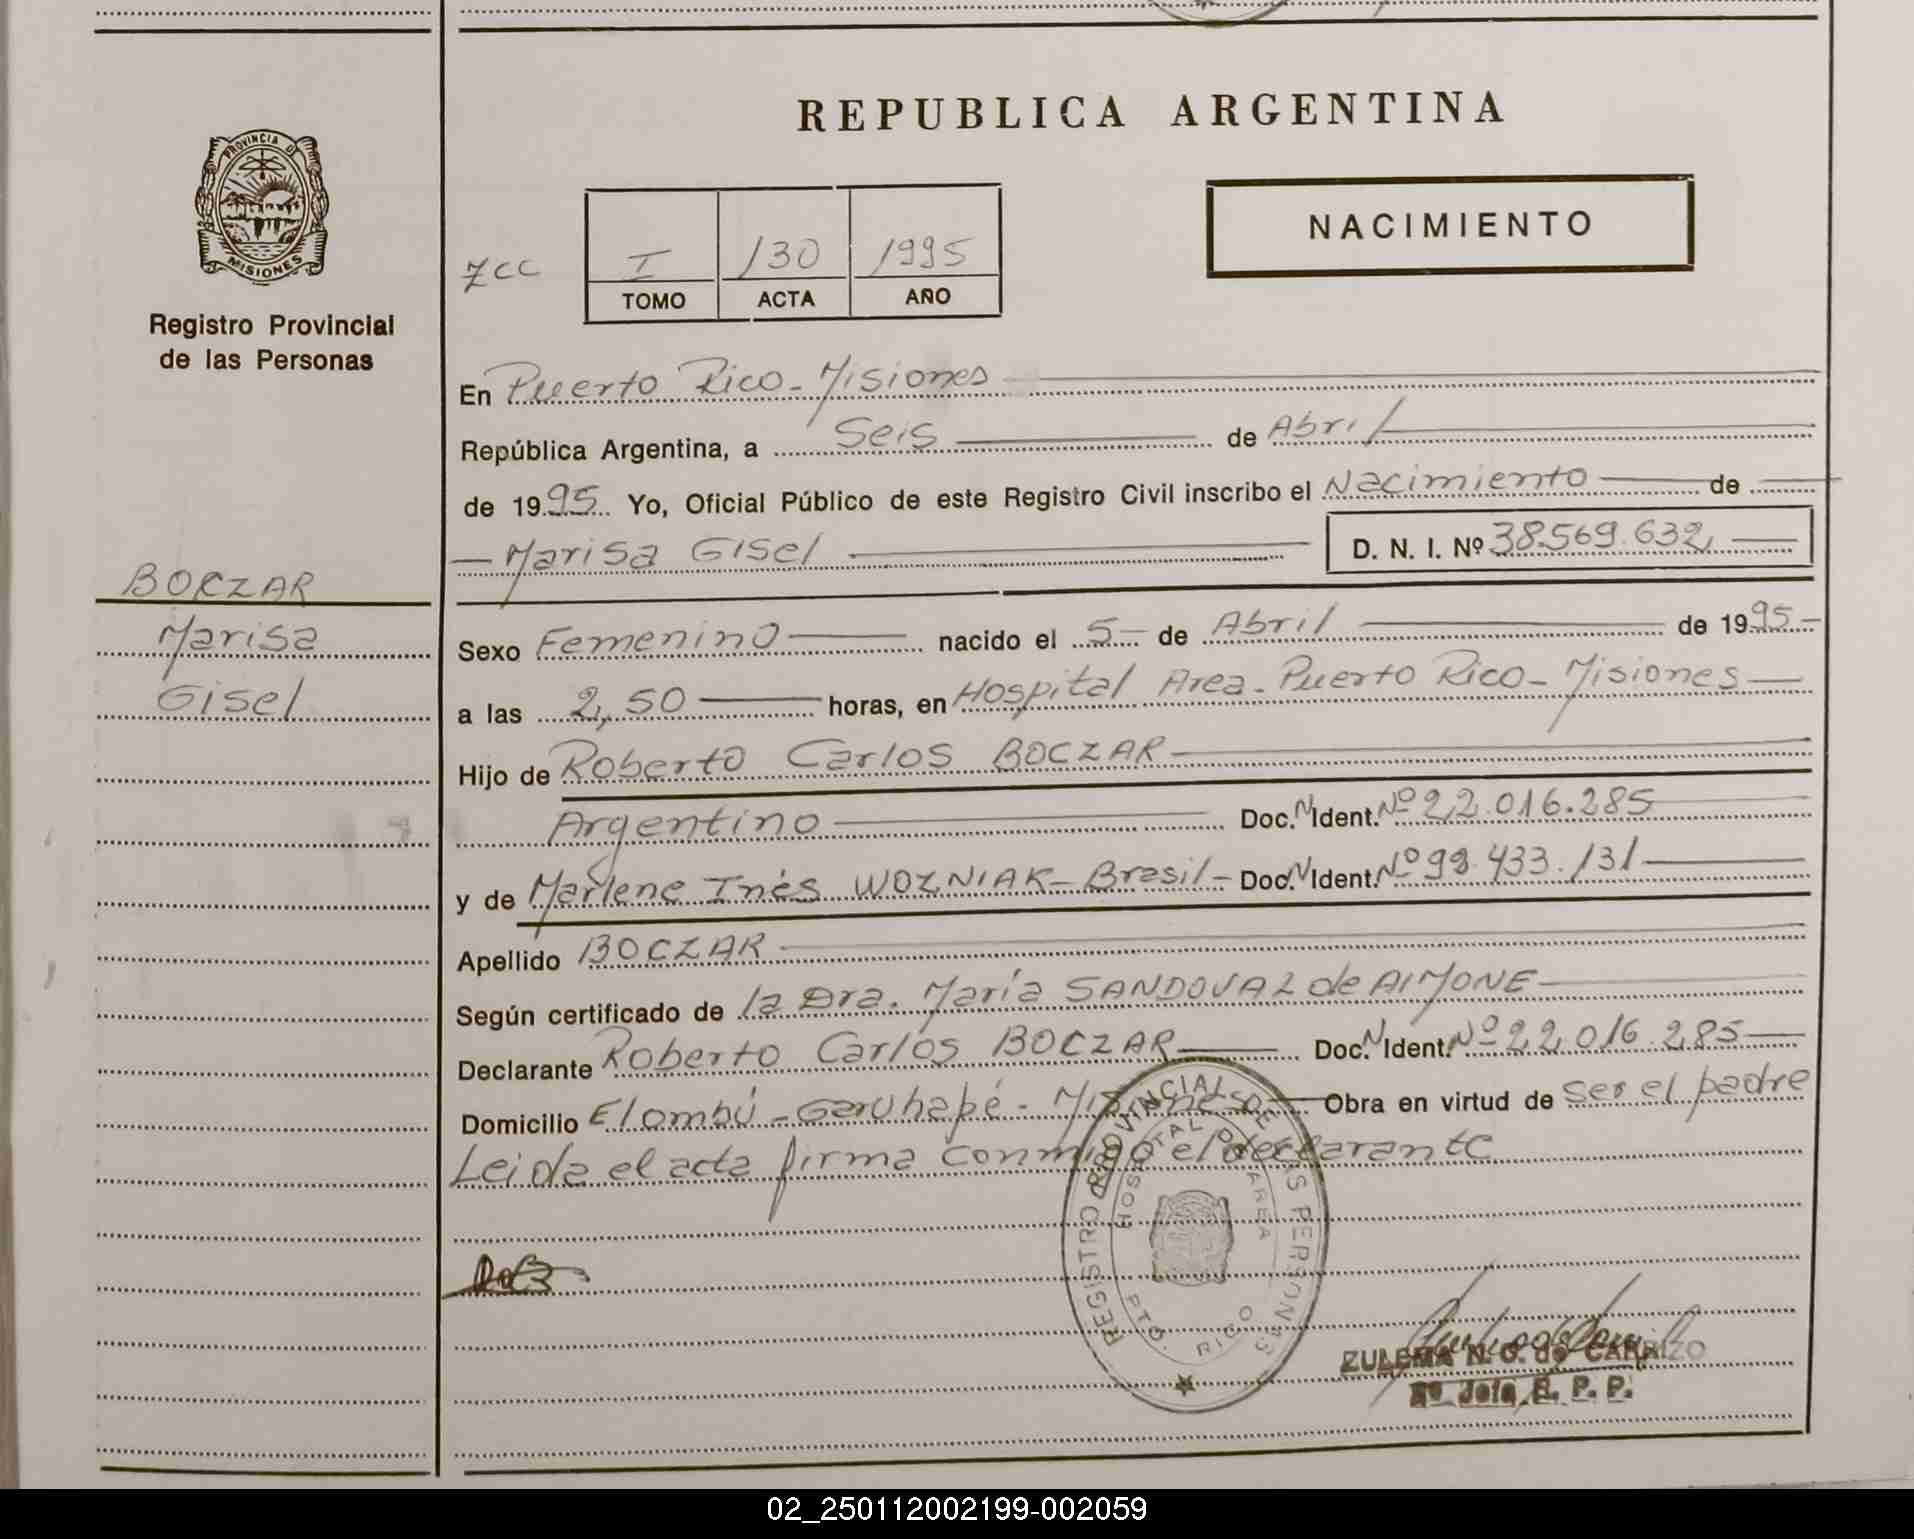 REPUBLICA ARGENTINA
PROVINCIA D
MISIONES
Registro Provincial
de las Personas
NACIMIENTO
ZCC
I 130 1995
TOMO ACTA AÑO
En Puerto Rico - Misiones
República Argentina, a Seis de Abril
de 1995 Yo, Oficial Público de este Registro Civil inscribo el Nacimiento de
Marisa Gisel D. N. I. Nº 38.569.632
BOCZAR
Marisa
Gisel
Sexo Femenino nacido el 5 de Abril de 1995
a las 2,50 horas, en Hospital Area - Puerto Rico - Misiones
Hijo de Roberto Carlos BOCZAR
Argentino Doc. N Ident. Nº 22.016.285
y de Marlene Inés WOZNIAK - Brasil - Doc. N Ident. Nº 98.433.131
Apellido BOCZAR
Según certificado de la Dra. María SANDOVAL de AIMONE
Declarante Roberto Carlos BOCZAR Doc. N Ident. Nº 22.016.285
Domicilio El ombú - Garuhapé - Misiones Obra en virtud de ser el padre
Leida el acta firma conmigo el declarante
REGISTRO PROVINCIAL DE LAS PERSONAS
HOSPITAL DE AREA
PTO. RICO
ZULEMA N. G. de CARRIZO
R. P. P.
02_250112002199-002059